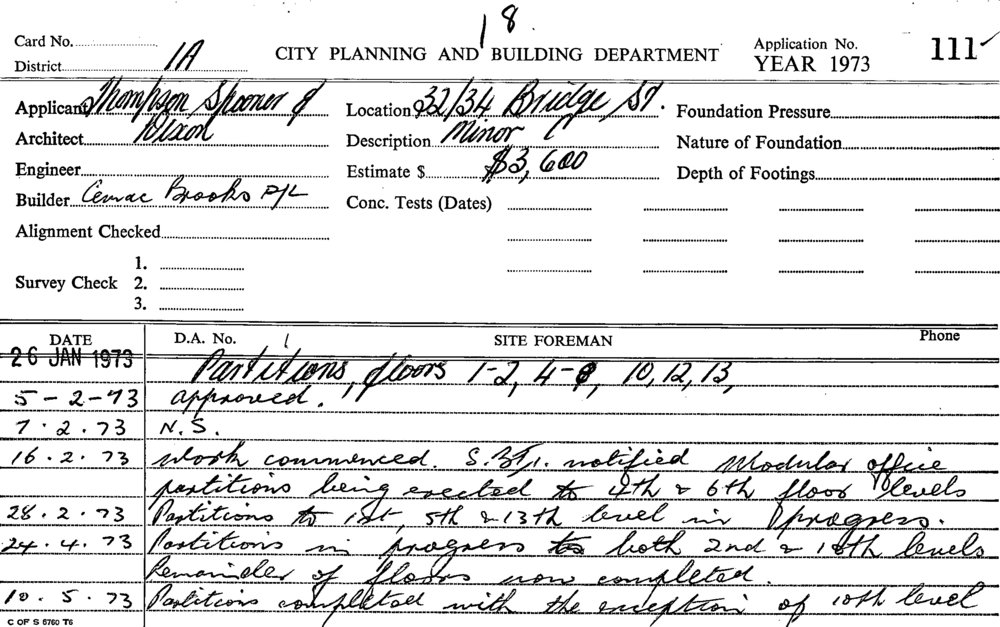 18
Card No.
District 1A
CITY PLANNING AND BUILDING DEPARTMENT
Application No. 111
YEAR 1973
Applicant Thompson Spooner &
Architect Dixon
Engineer
Builder Cemac Brooks P/L
Alignment Checked
Survey Check 1.
2.
3.
Location 32/34 Bridge St.
Description Minor C
Estimate $ $3,600
Conc. Tests (Dates)
Foundation Pressure
Nature of Foundation
Depth of Footings
DATE D.A. No. 1 SITE FOREMAN Phone
26 JAN 1973 Partitions, floors 1-2, 4-8, 10, 12, 13,
5-2-73 approved.
7.2.73 N.S.
16.2.73 Work commenced. notified Modular office
partitions being erected to 4th & 6th floor levels
28.2.73 Partitions to 1st, 5th & 13th level in progress.
24.4.73 Partitions in progress to both 2nd & levels
Remainder of floors now completed.
10.5.73 Partitions completed with the exception of 10th level
C OF S 6760 T6